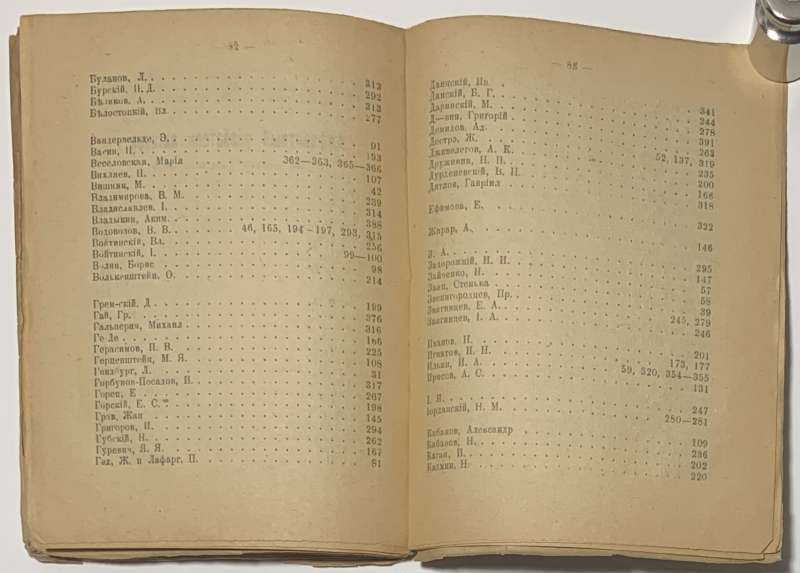 — 82 —
Буланов, Л. 313
Бурскій, П. Д. 292
Бѣликов, А. 313
Бѣлостоцкій, Вл. 277
Вандервельде, Э. 91
193
Веселовская, Марія 362—363, 365—366
Вихляев, П. 107
Вишняк, М. 42
Владимирова, В. М. 239
Владиславлев, І. 314
Владыкин, Аким. 388
Водовозов, В. В. 46, 165, 194—197, 293, 315
Войтинскій, Вл. 256
Войтинскій, І. 99—100
Волин, Борис 98
Волькенштейн, О. 214
Грен-скій, Д. 199
Гай, Гр. 376
Гальперин, Михаил 316
Ге-Де 186
Герасимов, П. В. 225
Герценштейн, М. Я. 108
Гинзбург, Л. 31
Горбунов-Посадов, И. 317
Горец, Е 267
Горскій, Е. С. 198
Грав, Жан 145
Григоров, И. 294
Губскій, Н. 262
Гуревич, Я. Я. 167
Гед, Ж. и Лафарг, П. 81
— 83 —
Данскій, Ив.
Данскій, Б. Г. 341
Даринскій, М. 244
Григорій 278
Демидов, Ад. 391
Дестрэ, Ж. 263
Дживелегов, А. К. 52, 137, 319
Дружинин, Н. П. 235
Дурденевскій, В. Н. 200
Дятлов, Гавріил 166
Ефимова, Е. 318
Жирар, А. 322
З. А. 146
Задорожній, Н. Н. 295
Зайченко, П. 147
Заяц, Стенька 57
Звенигородцев, Пр. 58
Звягинцев, Е. А. 39
Звягинцев, І. А. 245, 279
246
Иванов, Н.
Игнатов, И. Н. 201
Ильин, И. А. 173, 177
Ирисов, А. С. 59, 320, 354—355
131
І. Я.
Іорданскій, Н. М. 247
280—281
Кабанов, Александр
Кабанов, Н. 109
Каган, В. 236
Казмин, Н 202
220